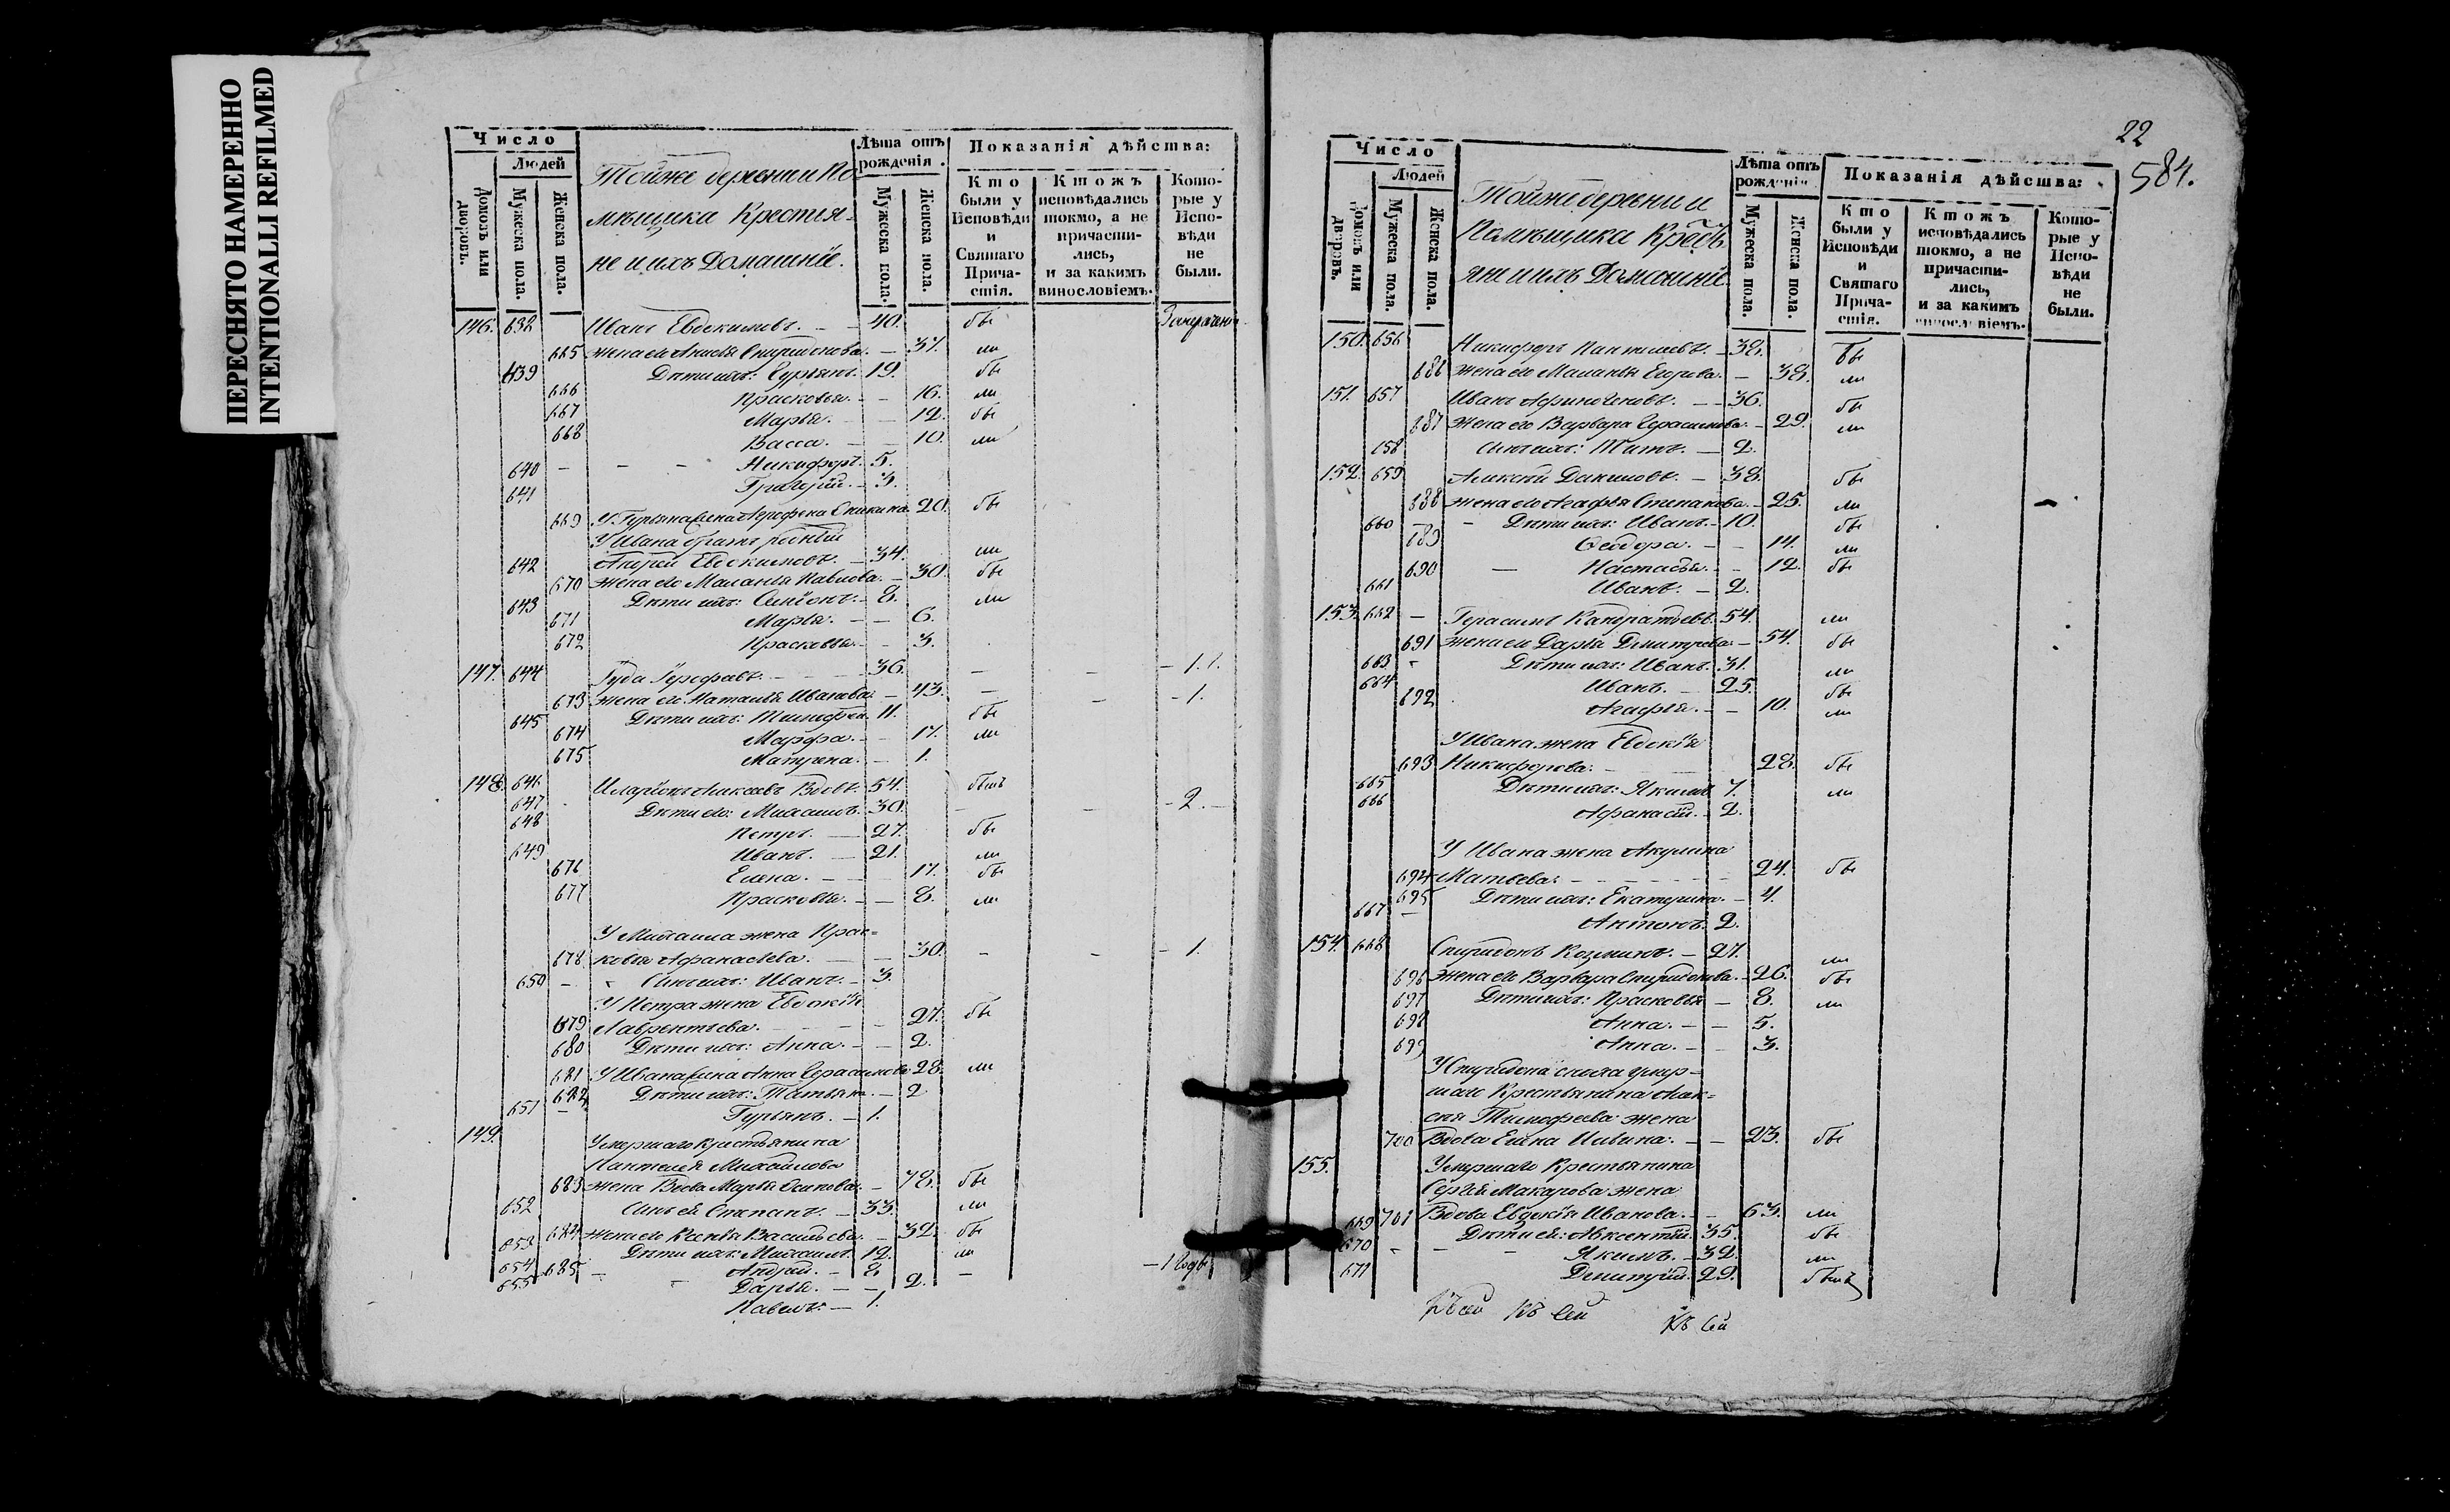 ПЕРЕСНЯТО НАМЕРЕННО
INTENTIONALLI REFILMED
Число
Людей
Домовъ или дворовъ.
Мужеска пола.
Женска пола.
Тойже деревни и По
мѣщика Крестья-
не и ихъ Домашніе.
Лѣта отъ рожденія.
Мужеска пола.
Женска пола.
Показанія дѣйства:
Кто были у Исповѣди и Святаго Причастія.
Ктожъ исповѣдались токмо, а не причастились, и за какимъ винословіемъ.
Которые у Исповѣди не были.
146. 632 Иванъ Евдокимовъ. — 40. бы
665 жена его Анисья Спиридонова. — 37. ли
639 Дѣти ихъ: Гурьянъ. 19. бы
666 Прасковья. — 16. ли
667 Марья. — 12. бы
668 Васса. — 10. ли
640 — — — Никифоръ. 5.
641 Григорій. — 3.
669 У Гурьяна жена Аграфена Аникина 20. бы
У Ивана братъ родный
642 Андрей Евдокимовъ. — 34. ли
670 жена его Маланья Павлова. — 30. бы
643 Дѣти ихъ: Симіонъ. — 8. ли
671 Марья. — — 6.
672 Прасковья. — 3.
147. 644 Іуда Іерофѣевъ. — 36. — — — 1. 1.
673 жена его Наталья Иванова. — 43. — — — 1.
645 Дѣти ихъ: Тимофей. 11. бы
674 Марфа. — 17. ли
675 Матрена. — 1.
148. 646 Иларіонъ Алексѣевъ Вдовъ. 54. былъ
647 Дѣти его: Михаилъ. 30. — — — 2. —
648 Петръ. — 27. бы
649 Иванъ. — 21. ли
676 Елена. — — 17. бы
677 Прасковья. — — 8. ли
У Михаила жена Прас=
678 ковья Афанасьева. — — 30. — — — 1.
650 — Сынъ ихъ: Иванъ. — 3.
У Петра жена Евдокія
679 Лаврентьева. — — 27. бы
680 Дѣти ихъ: Анна. — — 2.
681 У Ивана жена Анна Герасимова 28. ли
682 Дѣти ихъ: Татьяна. — 2
651 — Гурьянъ. — 1.
149. Умершаго крестьянина
Пантелея Михайлова
683 жена Вдова Марья Осипова. — 78. бы
652 Сынъ ей Степанъ. — 33. ли
684 жена его Ксенья Васильева. — 32. бы
653 Дѣти ихъ: Михаилъ. 12. ли
654 Андрей. — 8 —
685 — Дарья. — — 2.
655 Павелъ. — 1.
22
584.
Число
Людей
Домовъ или дворовъ.
Мужеска пола.
Женска пола.
Тойже деревни и
Помѣщика Кресть
яне и ихъ Домашніе
Лѣта отъ рожденія
Мужеска пола.
Женска пола.
Показанія дѣйства:
Кто были у Исповѣди и Святаго Причастія.
Ктожъ исповѣдались токмо, а не причастились, и за какимъ винословіемъ.
Которые у Исповѣди не были.
150. 656 Никифоръ Пантелѣевъ. — 38. бы
686 жена его Маланья Егорова. — 38. ли
151. 657 Иванъ Афиногеновъ. — 36. бы
687 жена его Варвара Герасимова. — 29. ли
658 Сынъ ихъ: Титъ. — 2.
152. 659 Алексѣй Даниловъ. — 38. бы
688 жена его Агафья Степанова. — 25. ли
660 — — Дѣти ихъ: Иванъ. — 10. бы
689 Ѳеодора. — — 14. ли
690 — Настасья. — 12. бы
661 Иванъ. — 2.
153. 662 — Герасимъ Кандратьевъ. 54. ли
691 жена его Дарья Дмитрева. — 54. бы
663 Дѣти ихъ: Иванъ. 31. ли
664 Иванъ. — 25. бы
692 Агафья. — — 10. ли
У Ивана жена Евдокія
693 Никифорова. — 28. бы
665 Дѣти ихъ: Якимъ 7. ли
666 Афанасій. — 2.
У Ивана жена Акулина
694 Матвева. — — — 24. бы
695 Дѣти ихъ: Екатерина. — 4.
667 — Антонъ. 2.
154. 668 Спиридонъ Козминъ. — 27. ли
696 жена его Варвара Спиридонова. — 26. бы
697 Дѣти ихъ: Прасковья — 8. ли
698 Анна. — — 5.
699 Анна. — — 3.
У Спиридона сноха умер-
шаго Крестьянина Алек=
сѣя Тимофѣева жена
700 Вдова Елена Ильина. — — 23. бы
155. Умершаго Крестьянина
Сергѣя Макарова жена
701 Вдова Евдокія Иванова. — 63. ли
669 Дѣти ей: Авксентій. 35. бы
670 — — — Якимъ. — 32. ли
671 Дмитрій. 29. былъ
Къ сей Къ сей Къ сей